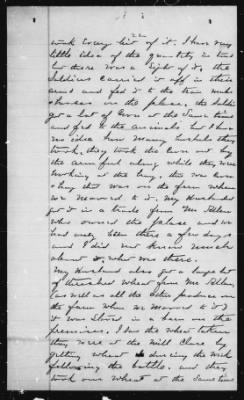 22
took every bit of it. I have very
little idea of the quantity in tons
but there was a sight of it, the
Soldiers carried it off in their
arms and fed it to the team mules
& horses on the place, the soldiers
got a lot of Corn at the same time
and fed to the animals but I have
no idea how many bushels they
took, they took the corn out by
the arm full along while they were
working at the hay, this was corn
& hay that was on the farm when
we moved to it. My Husband
got it in a trade from Mr Allen
who owned the place and we
had only been there a few days
and I did not know much
about it, what was there.
My Husband also got a large lot
of threshed wheat from Mr Allen,
(as well as all the other produce on
the farm when we moved to it)
it was stored in a barn on the
premises. I saw the wheat taken
they were at the Mill Close by
getting wheat during the week
following the battle, and they
took our wheat at the same time